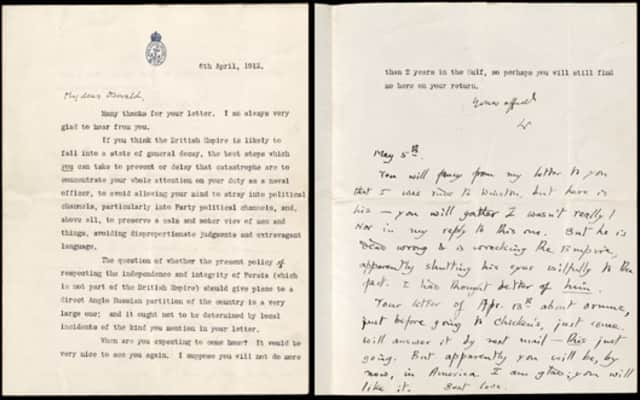 6th April, 1912.
My dear Oswald,
Many thanks for your letter. I am always very
glad to hear from you.
If you think the British Empire is likely to
fall into a state of general decay, the best steps which
you can take to prevent or delay that catastrophe are to
concentrate your whole attention on your duty as a naval
officer, to avoid allowing your mind to stray into political
channels, particularly into Party political channels, and,
above all, to preserve a calm and sober view of men and
things, avoiding disproportionate judgments and extravagant
language.
The question of whether the present policy of
respecting the independence and integrity of Persia (which
is not part of the British Empire) should give place to a
direct Anglo Russian partition of the country is a very
large one; and it ought not to be determined by local
incidents of the kind you mention in your letter.
When are you expecting to come home? It would be
very nice to see you again. I suppose you will not do more
than 2 years in the Gulf, so perhaps you will still find
me here on your return.
Yours affect
W
May 5th.
You will fancy from my letter to you
that I was rude to Winston, but here is
his — you will gather I wasn't really!
Nor in my reply to this one. But he is
wrong & is wrecking the Empire,
apparently shutting his eyes wilfully to the
fact. I had thought better of him.
Your letter of Apr. about
just before going to just come.
Will answer it by next mail — this just
going. But apparently you will be, by
now, in America I am glad: you will
like it. Best love.